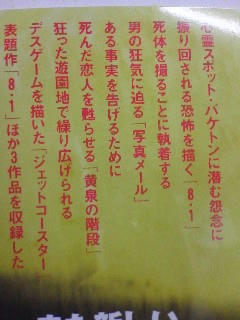 心霊スポット・バケトンに潜む怨念に
振り回される恐怖を描く「8・1」
死体を撮ることに執着する
男の狂気に迫る「写真メール」
ある事実を告げるために
死んだ恋人を甦らせる「黄泉の階段」
狂った遊園地で繰り広げられる
デスゲームを描いた「ジェットコースター
表題作「8・1」ほか3作品を収録した